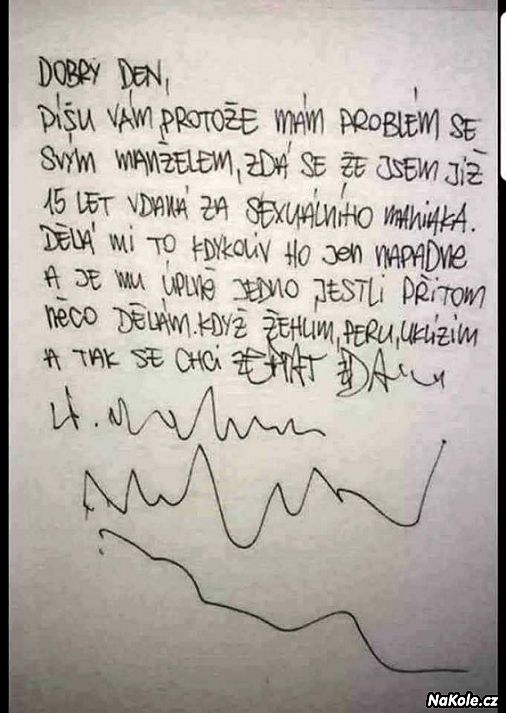 DOBRÝ DEN,
PÍŠU VÁM, PROTOŽE MÁM PROBLÉM SE
SVÝM MANŽELEM, ZDÁ SE ŽE JSEM JIŽ
15 LET VDANÁ ZA SEXUÁLNÍHO MANIAKA.
DĚLÁ MI TO KDYKOLIV HO JEN NAPADNE
A JE MU ÚPLNĚ JEDNO JESTLI PŘITOM
NĚCO DĚLÁM. KDYŽ ŽEHLÍM, PERU, UKLÍZÍM
A TAK SE CHCI
NaKole.cz